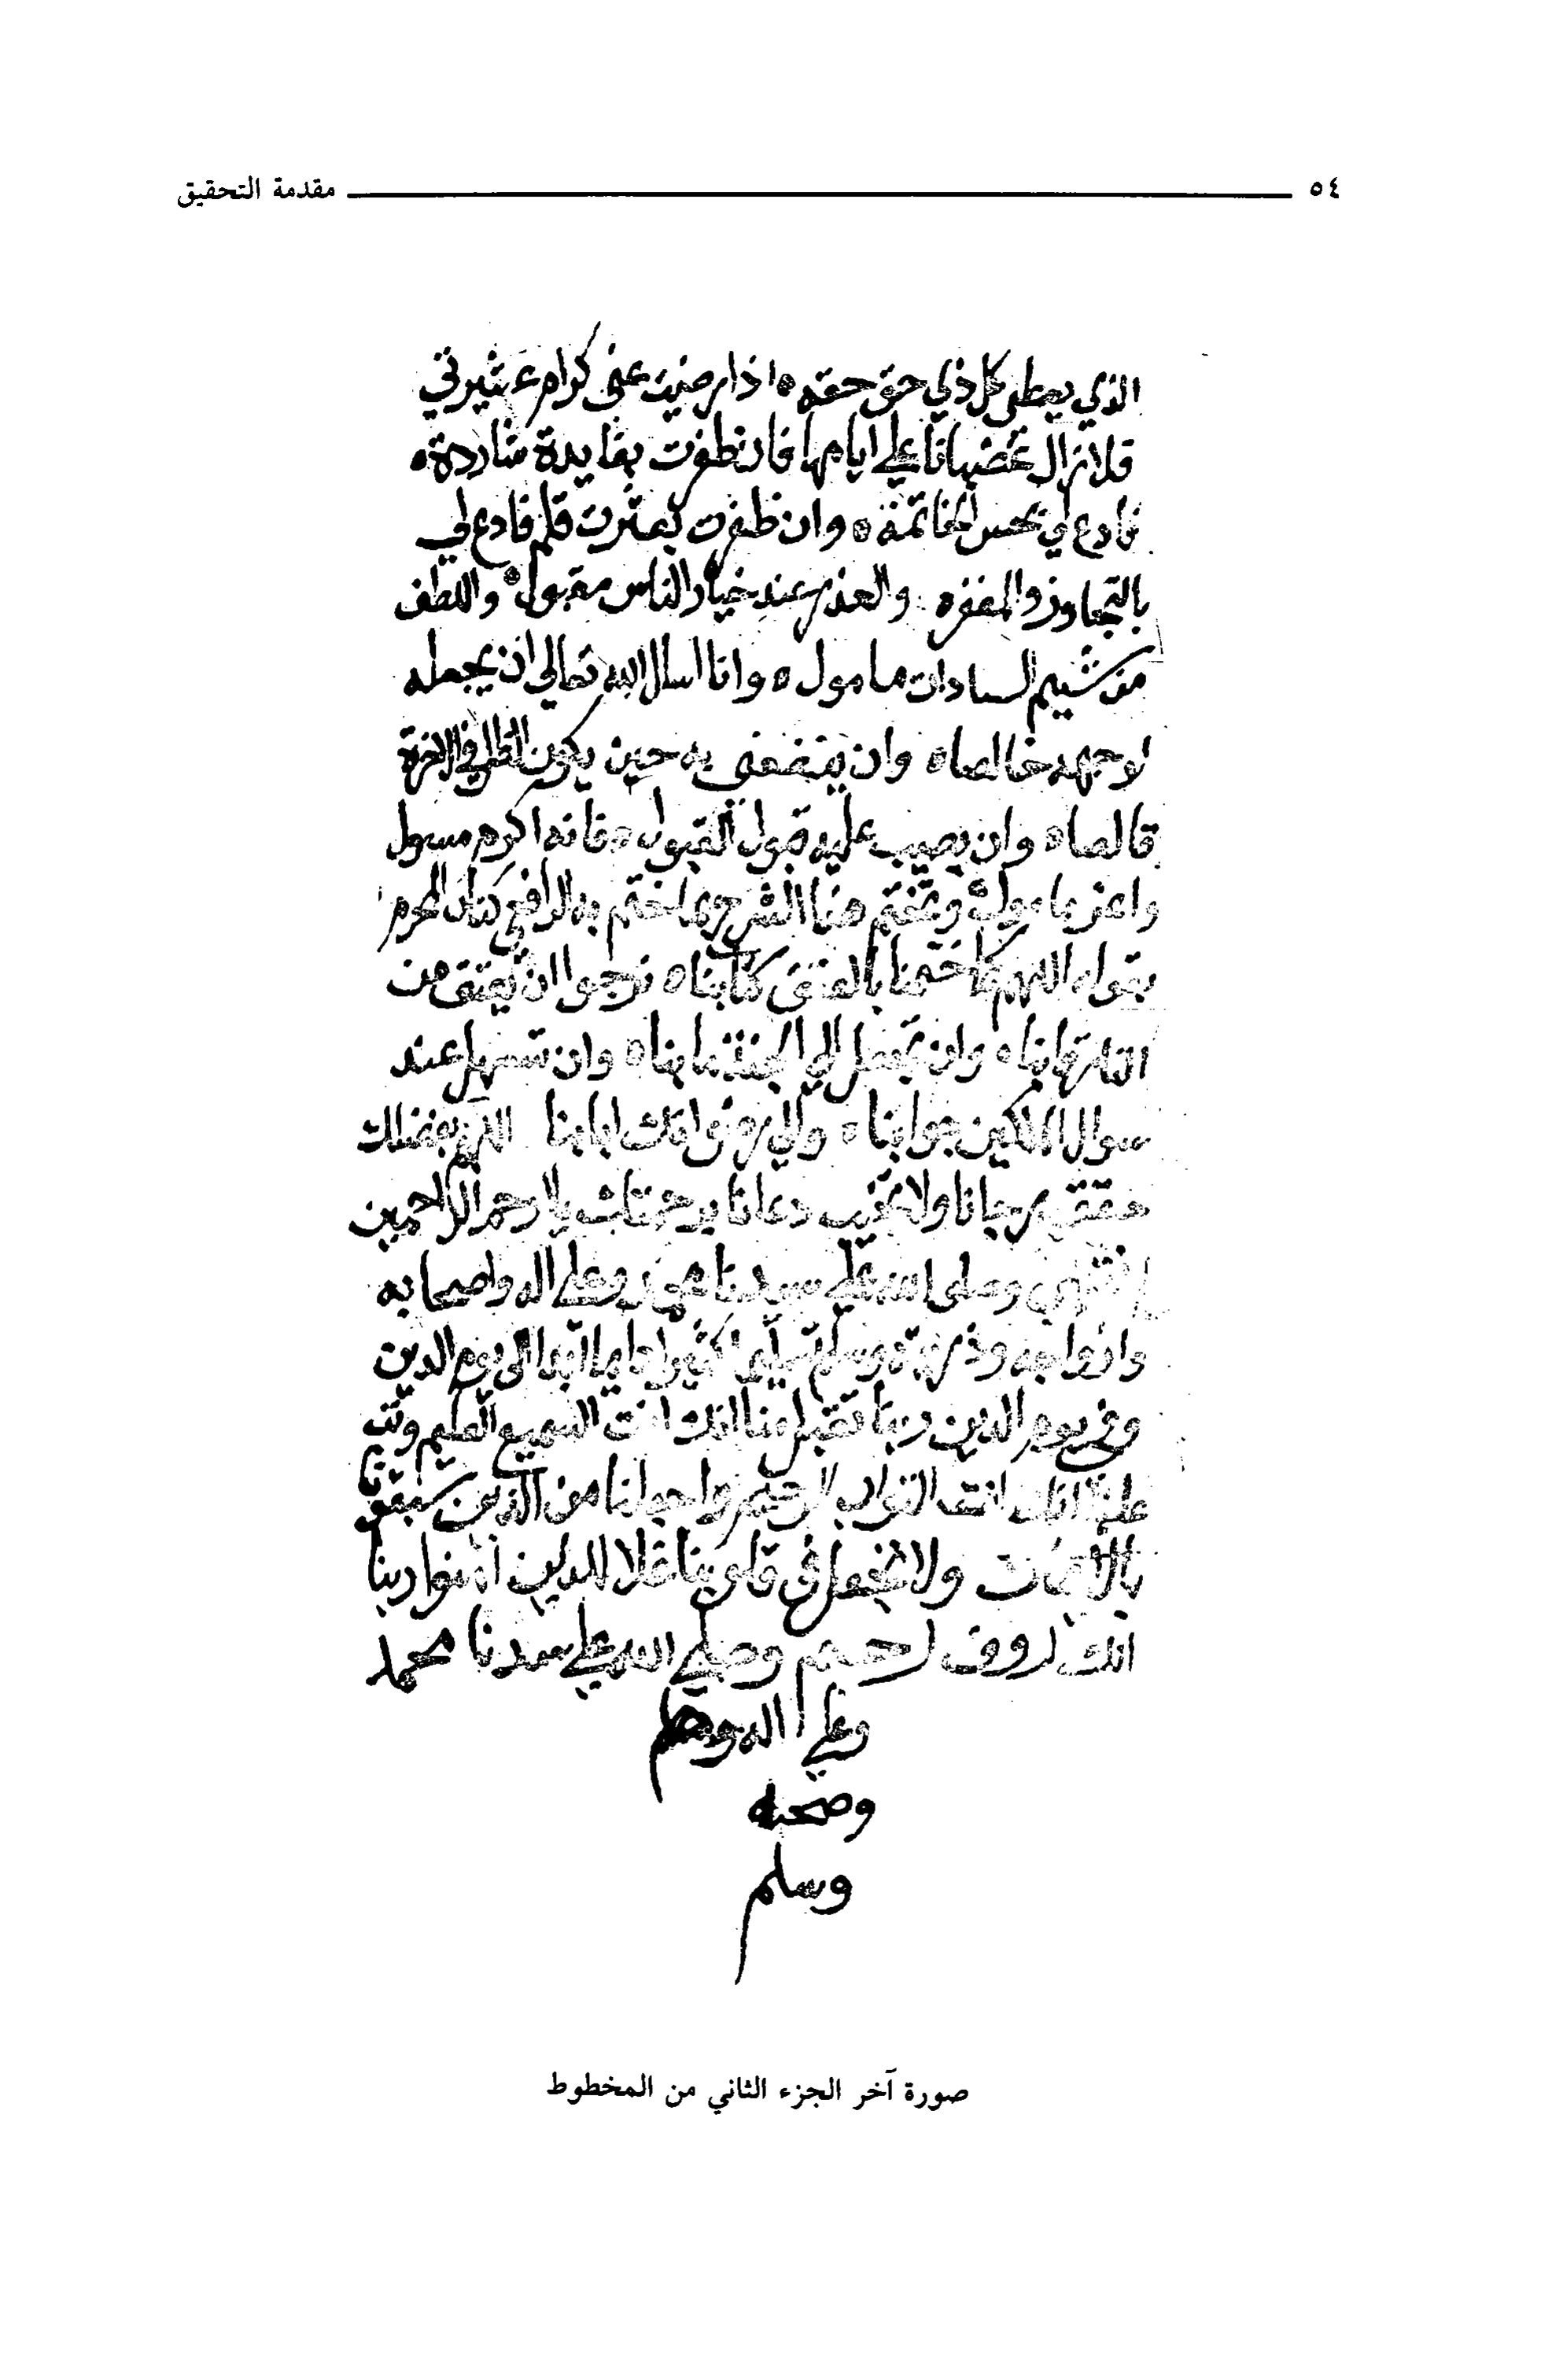 ٥٤ مقدمة التحقيق
الذي يعطي كل ذي حق حقه ه اذا رضيت عني كرام عشيرتي
فلا زال غضبانا علي ايامها فان ظفرت بفايدة شاردة ه
فادع لي بحسن الخاتمة ه وان ظفرت بعثرت قلم فادع لي
بالتجاوز والمغفره والعذر عند خيار الناس مقبول ه واللطف
من شيم السادات مامول ه وانا اسال الله تعالي ان يجعله
لوجهه خالصا ه وان ينفعني به حين يكون الظل في الاخرة
قالصا ه وان يصيب عليه قبول القبول ه فانه اكرم مسول
واعز مامول ه ونختم هذا الشرح بما ختم به الرافعي كتابه المحرم
بقوله اللهم كما ختمنا بالعتق كتابنا ه نرجوا ان تعتق من
النار رقابنا ه وان تجعل الي الجنة مابنا ه وان تسهل عند
سوال الملكين جوابنا ه والي رضوانك ايابنا اللهم بفضلك
حقق رجانا ولا تخيب دعانا برحمتك يا ارحم الراحمين
انتهي وصلى الله علي سيدنا محمد وعلي اله واصحابه
وازواجه وذريته وسلم تسليما كثيرا دايما ابدا الى يوم الدين
يوم الدين ربنا تقبل منا انك انت السميع العليم وتب
علينا انك انت التواب الرحيم واجعلنا من الذين سبقونا
ولا تجعل في قلوبنا غلا للذين امنوا ربنا
انك روف رحيم وصلي الله علي سيدنا محمد
وعلي اله
وصحبه
وسلم
صورة آخر الجزء الثاني من المخطوط